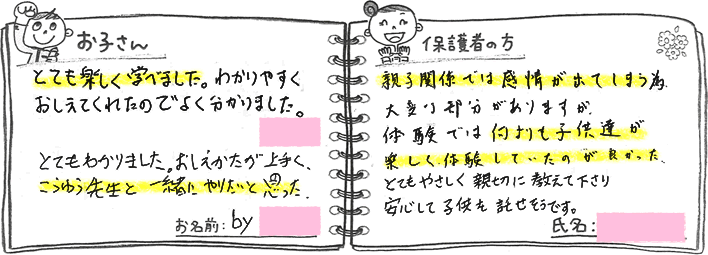 お子さん
とても楽しく学べました。わかりやすく
おしえてくれたのでよく分かりました。
とてもわかりました。おしえかたが上手く、
こうゆう先生と一緒にやりたいと思った。
お名前: by
保護者の方
親子関係では感情が出てしまう為
大変な部分がありますが、
体験では何よりも子供達が
楽しく体験していたのが良かった。
とてもやさしく親切に教えて下さり
安心して子供を託せそうです。
氏名: